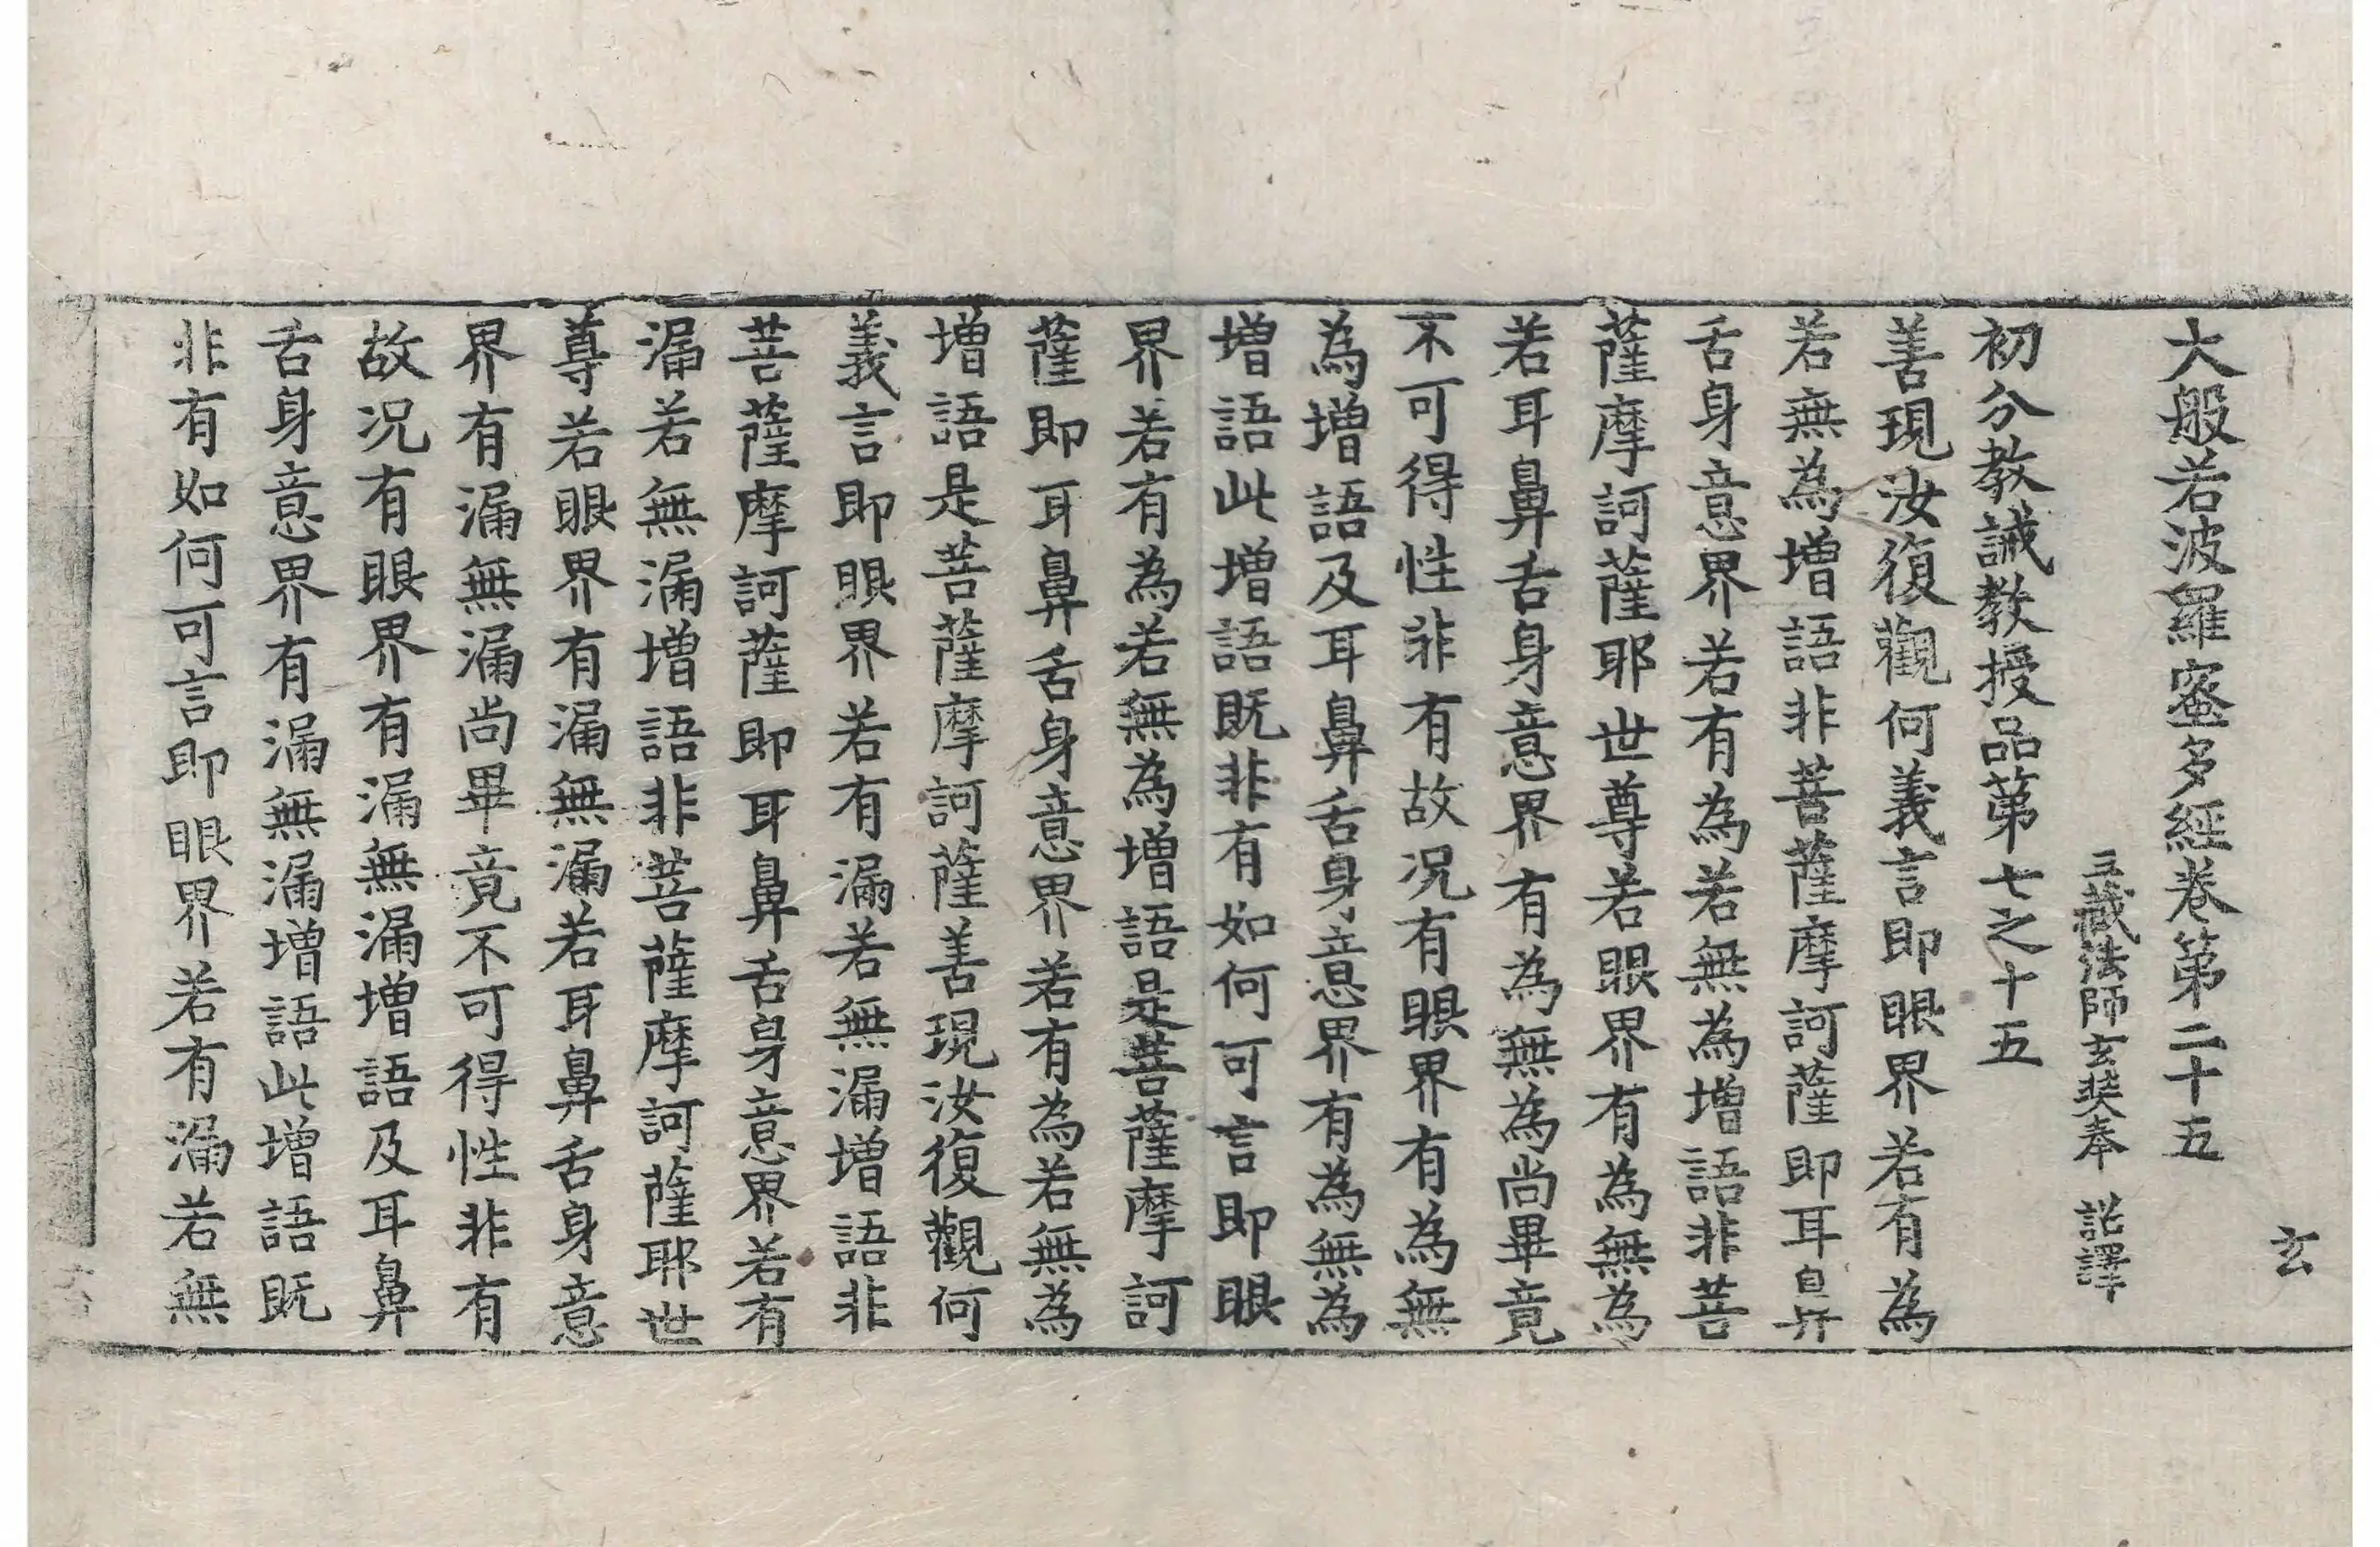 大般若波羅蜜多經卷第二十五
玄
三藏法師玄奘奉 詔譯
初分教誡教授品第七之十五
善現汝復觀何義言即眼界若有為
若無為增語非菩薩摩訶薩即耳鼻
舌身意界若有為若無為增語非菩
薩摩訶薩耶世尊若眼界有為無為
若耳鼻舌身意界有為無為尚畢竟
不可得性非有故况有眼界有為無
為增語及耳鼻舌身意界有為無為
增語此增語既非有如何可言即眼
界若有為若無為增語是菩薩摩訶
薩即耳鼻舌身意界若有為若無為
增語是菩薩摩訶薩善現汝復觀何
義言即眼界若有漏若無漏增語非
菩薩摩訶薩即耳鼻舌身意界若有
漏若無漏增語非菩薩摩訶薩耶世
尊若眼界有漏無漏若耳鼻舌身意
界有漏無漏尚畢竟不可得性非有
故况有眼界有漏無漏增語及耳鼻
舌身意界有漏無漏增語此增語既
非有如何可言即眼界若有漏若無